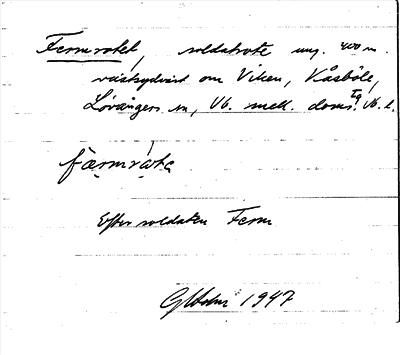 Fermrotet, soldatrote ung. 400 m.
västsydväst om Viken, Kåsböle,
Lövångers sn, Vb. mell. doms. tg, Vb. l.
færmrɷ̀te
Efter soldaten Ferm
GHolm 1947